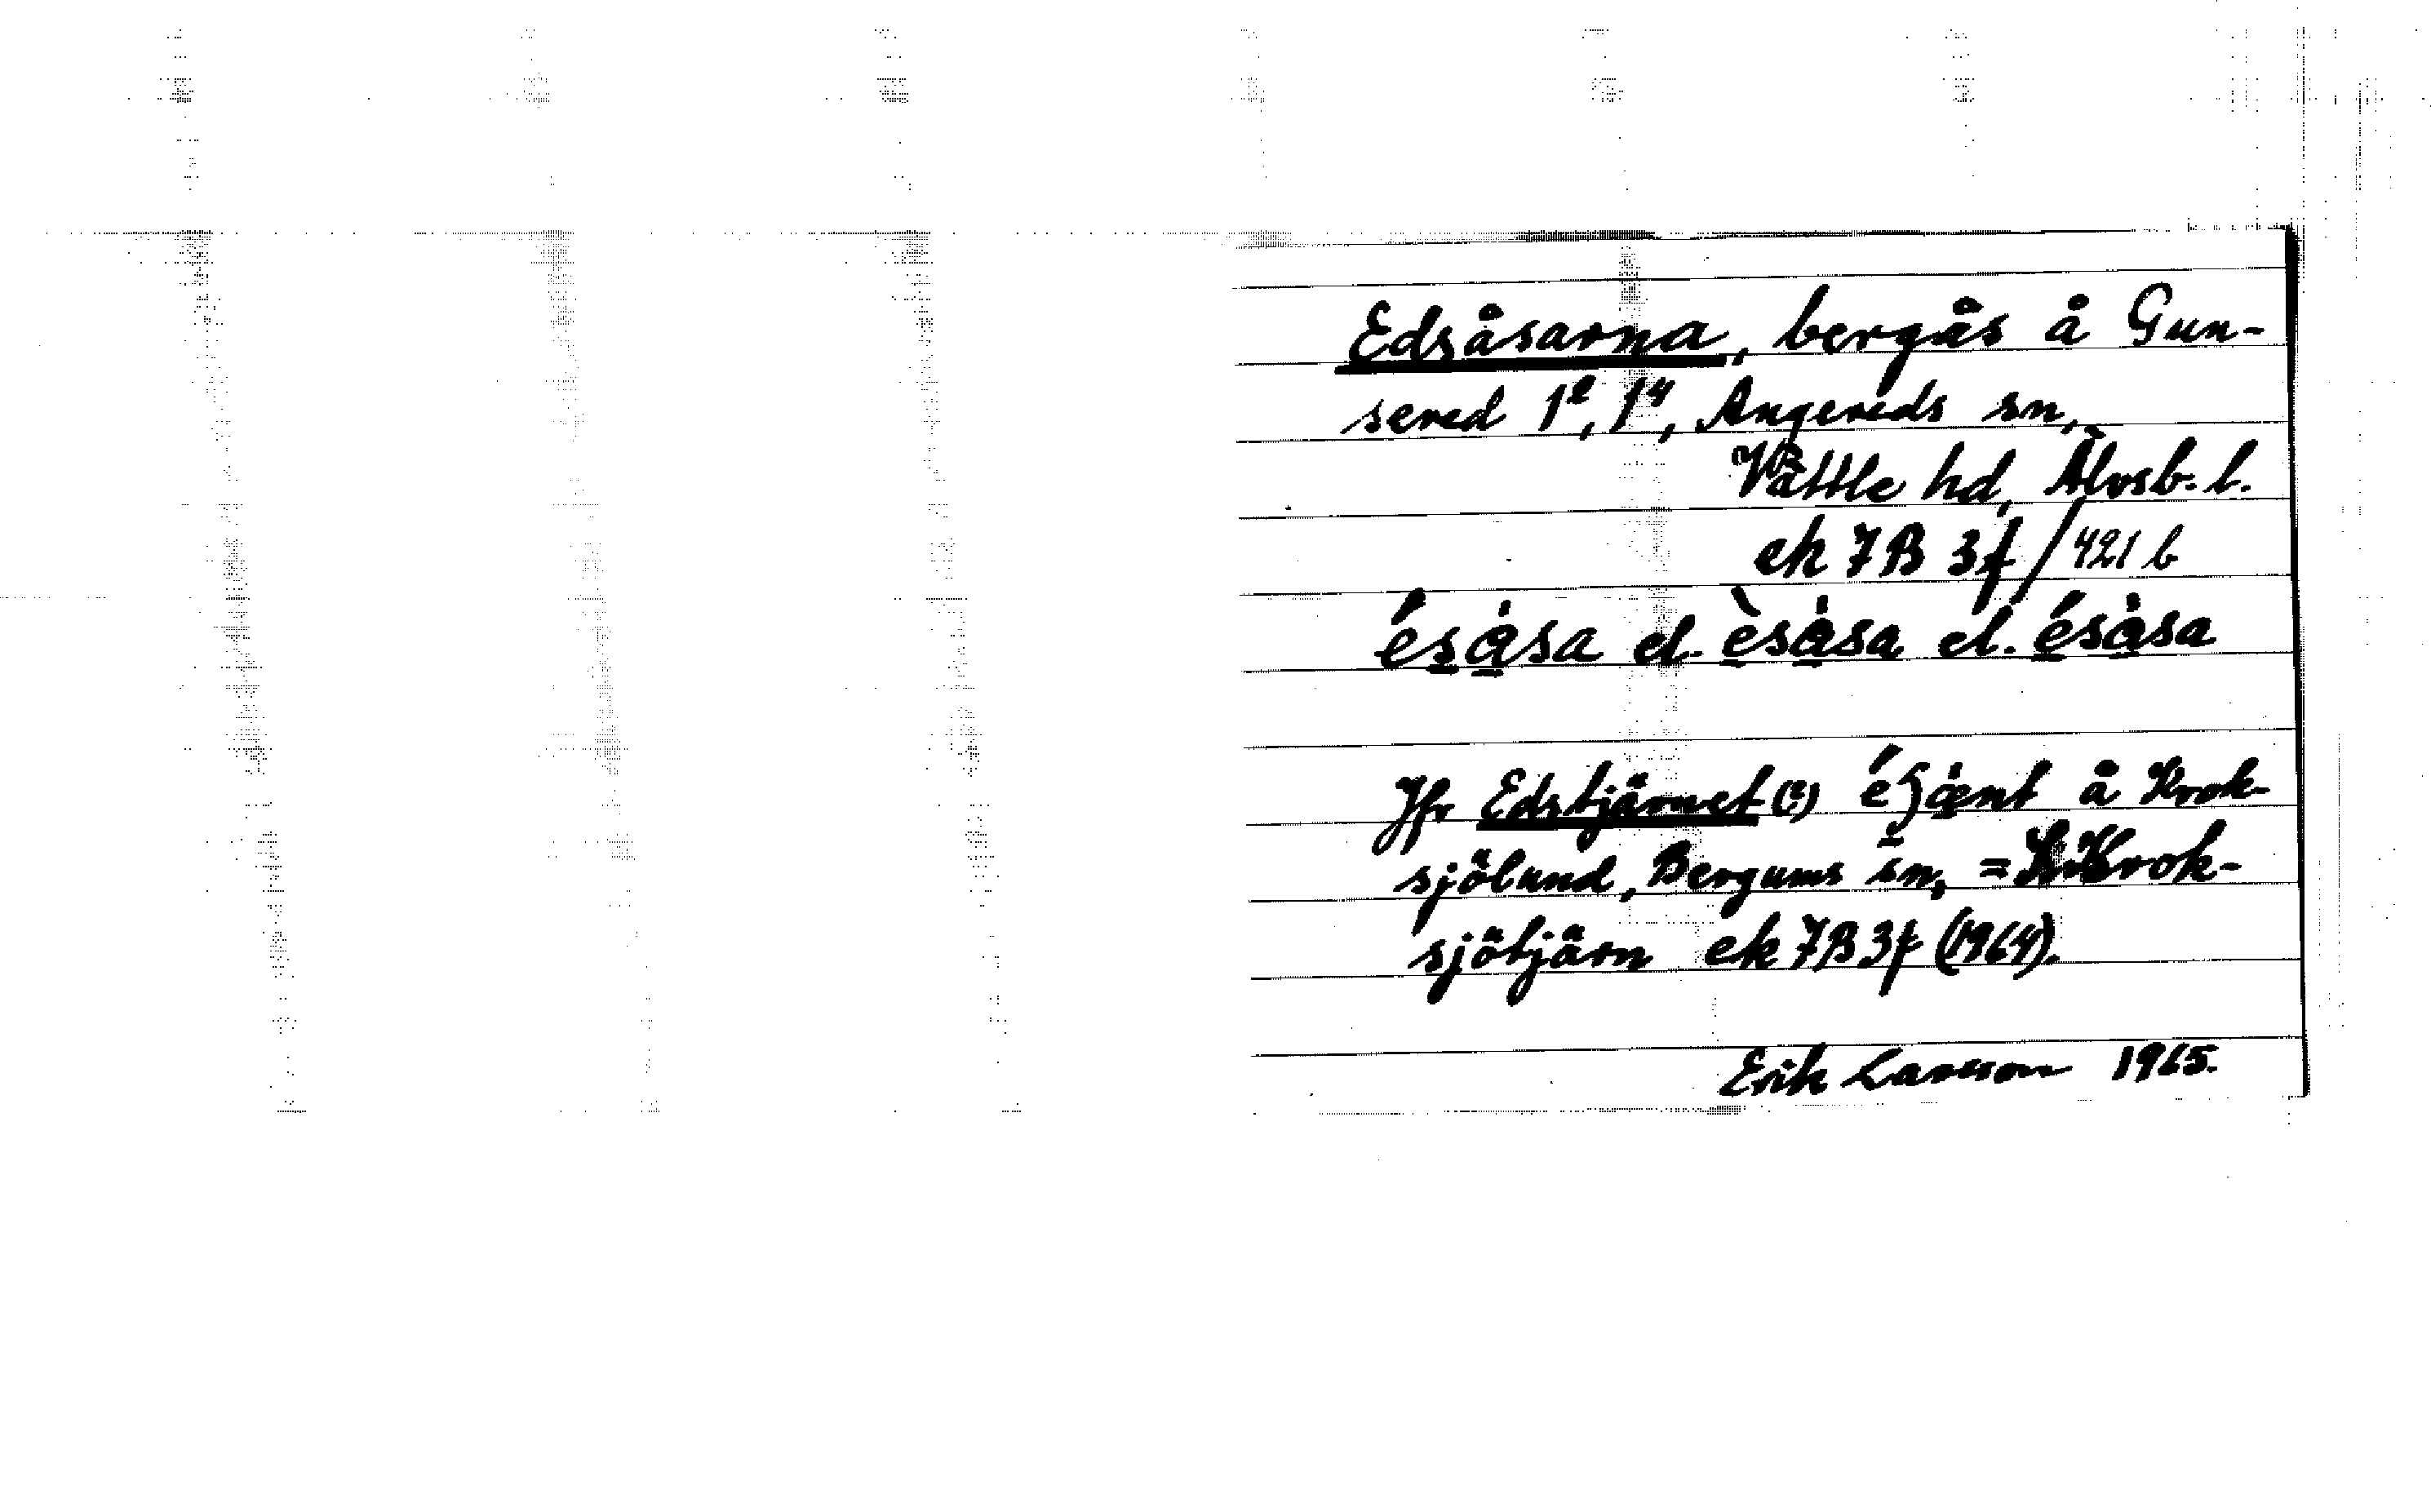 Edsåsarna, bergås å Gun-
sered 1², 1⁴, Angereds sn,
Vättle hd, Älvsb. l.
ek 7B 3f / 421 b
ésåsa el. èsåsa el. ésåsa
Jfr Edstjärnet (?) å Krok-
sjölund, Bergums sn, = Krok-
sjötjärn ek 7B3f (1964).
Erik Larsson 1965.